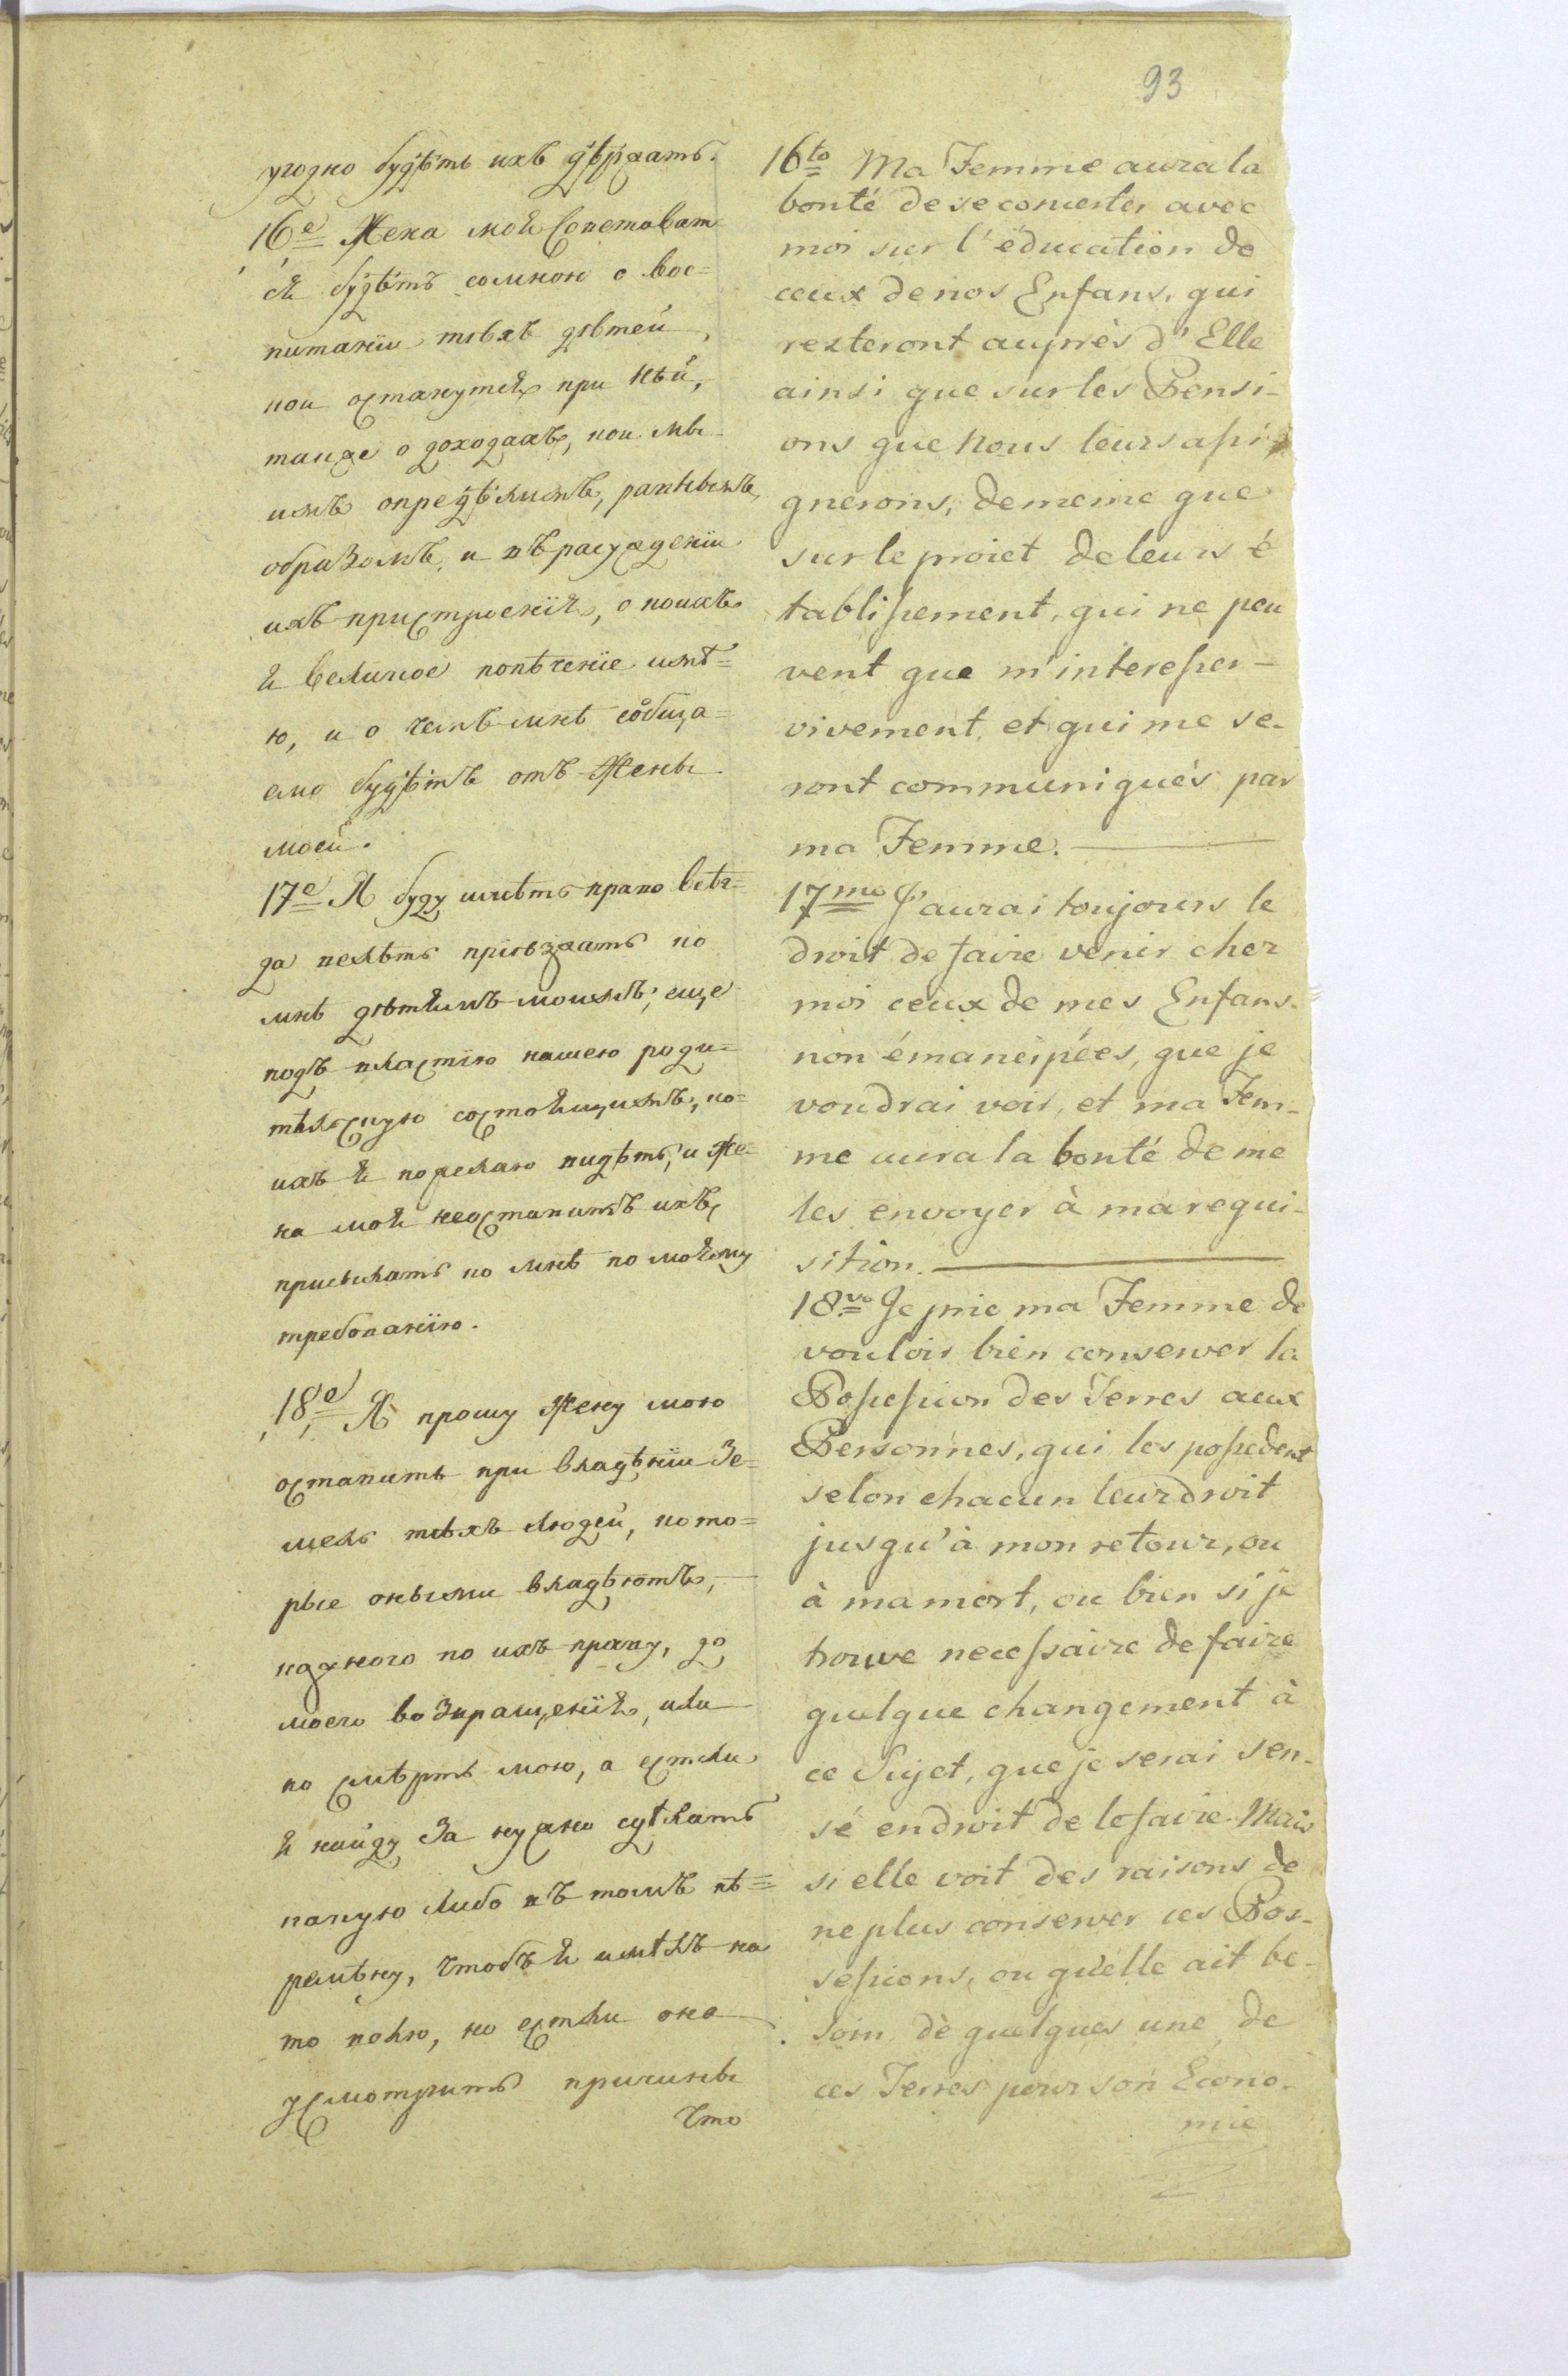 93
угодно будѣтъ ихъ дѣржать.
16е Жена моя Советоват
ся будѣтъ сомною о вос=
питанiи тѣхъ дѣтей,
кои останутся при нѣй,
также о доходахъ, кои мы
имъ опредѣлимъ, равнымъ
образомъ и въ расужденiи
ихъ пристроенiя, о коихъ
я великое попѣченiе имѣ=
ю, и о чемъ мнѣ сообща=
емо будѣтъ отъ Жены
моей.
17е Я буду имѣть право всѣг=
да велѣть прiѣзжать ко
мнѣ дѣтямъ моимъ, еще
подъ властiю нашею роди=
тѣлскую состоящимъ, ко=
ихъ я пожелаю видѣть, и Же=
на моя неоставитъ ихъ
присылать ко мнѣ по моему
требованiю.
18е Я прошу Жену мою
оставить при владѣнiи Зе=
мель тѣхъ людей, кото=
рые оными владѣютъ,
каждого по ихъ праву, до
моего возвращенiя, или
по смѣрть мою, а естли
я найду За нужно сдѣлать
какую либо въ томъ пѣ=
ремѣну, чтобъ я имѣлъ на
то волю, но естли она
усмотритъ причины
что
16to Ma Femme aura la
bonté de se concerter avec
moi sur l'éducation de
ceux de nos Enfans, qui
resteront auprès d'Elle
ainsi que sur les Pensi-
ons que nous leurs assi-
gnerons, de meme que
sur le projet de leurs é
tablissement, qui ne peu
vent que m'interesser
vivement, et qui me se-
ront communiqués par
ma Femme.
17mo J'aurai toujours le
droit de faire venir chez
moi ceux de mes Enfans
non émancipées, que je
voudrai voir, et ma Fem-
me aura la bonté de me
les envoyer à ma requi-
sition.
18vo Je prie ma Femme de
vouloir bien conserver la
Possession des Terres aux
Personnes, qui les possedent
selon chacun leur droit
jusqu'à mon retour, ou
à ma mort, ou bien si je
trouve necessaire de faire
quelque changement à
ce Sujet, que je serai sen-
sé en droit de le faire. Mais
si elle voit des raisons de
ne plus conserver ces Pos-
sessions, ou qu'elle ait be-
soin de quelques une de
ces Terres pour son Écono-
mie